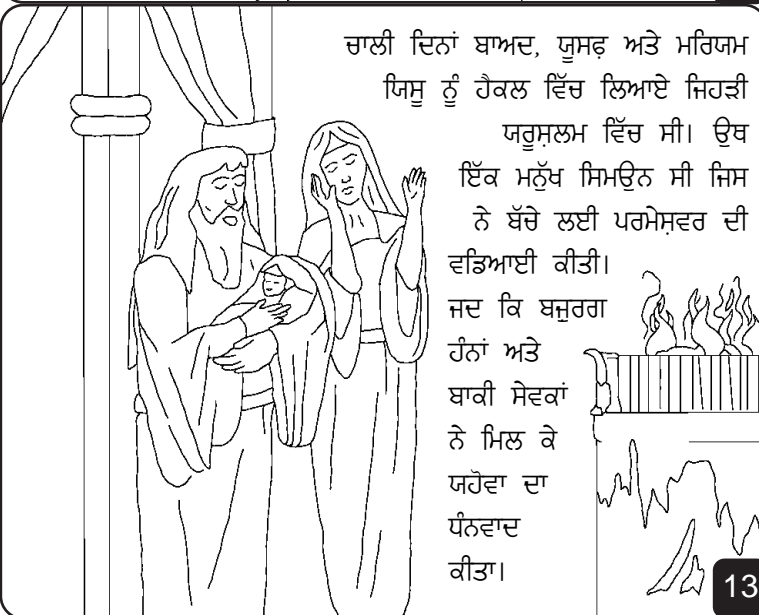 ਚਾਲੀ ਦਿਨਾਂ ਬਾਅਦ, ਯੂਸਫ਼ ਅਤੇ ਮਰਿਯਮ
ਯਿਸੂ ਨੂੰ ਹੈਕਲ ਵਿੱਚ ਲਿਆਏ ਜਿਹੜੀ
ਯਰੂਸ਼ਲਮ ਵਿੱਚ ਸੀ। ਉਥ
ਇੱਕ ਮਨੁੱਖ ਸਿਮਉਨ ਸੀ ਜਿਸ
ਨੇ ਬੱਚੇ ਲਈ ਪਰਮੇਸ਼ਵਰ ਦੀ
ਵਡਿਆਈ ਕੀਤੀ।
ਜਦ ਕਿ ਬਜੁਰਗ
ਹੰਨਾਂ ਅਤੇ
ਬਾਕੀ ਸੇਵਕਾਂ
ਨੇ ਮਿਲ ਕੇ
ਯਹੋਵਾ ਦਾ
ਧੰਨਵਾਦ
ਕੀਤਾ।
13